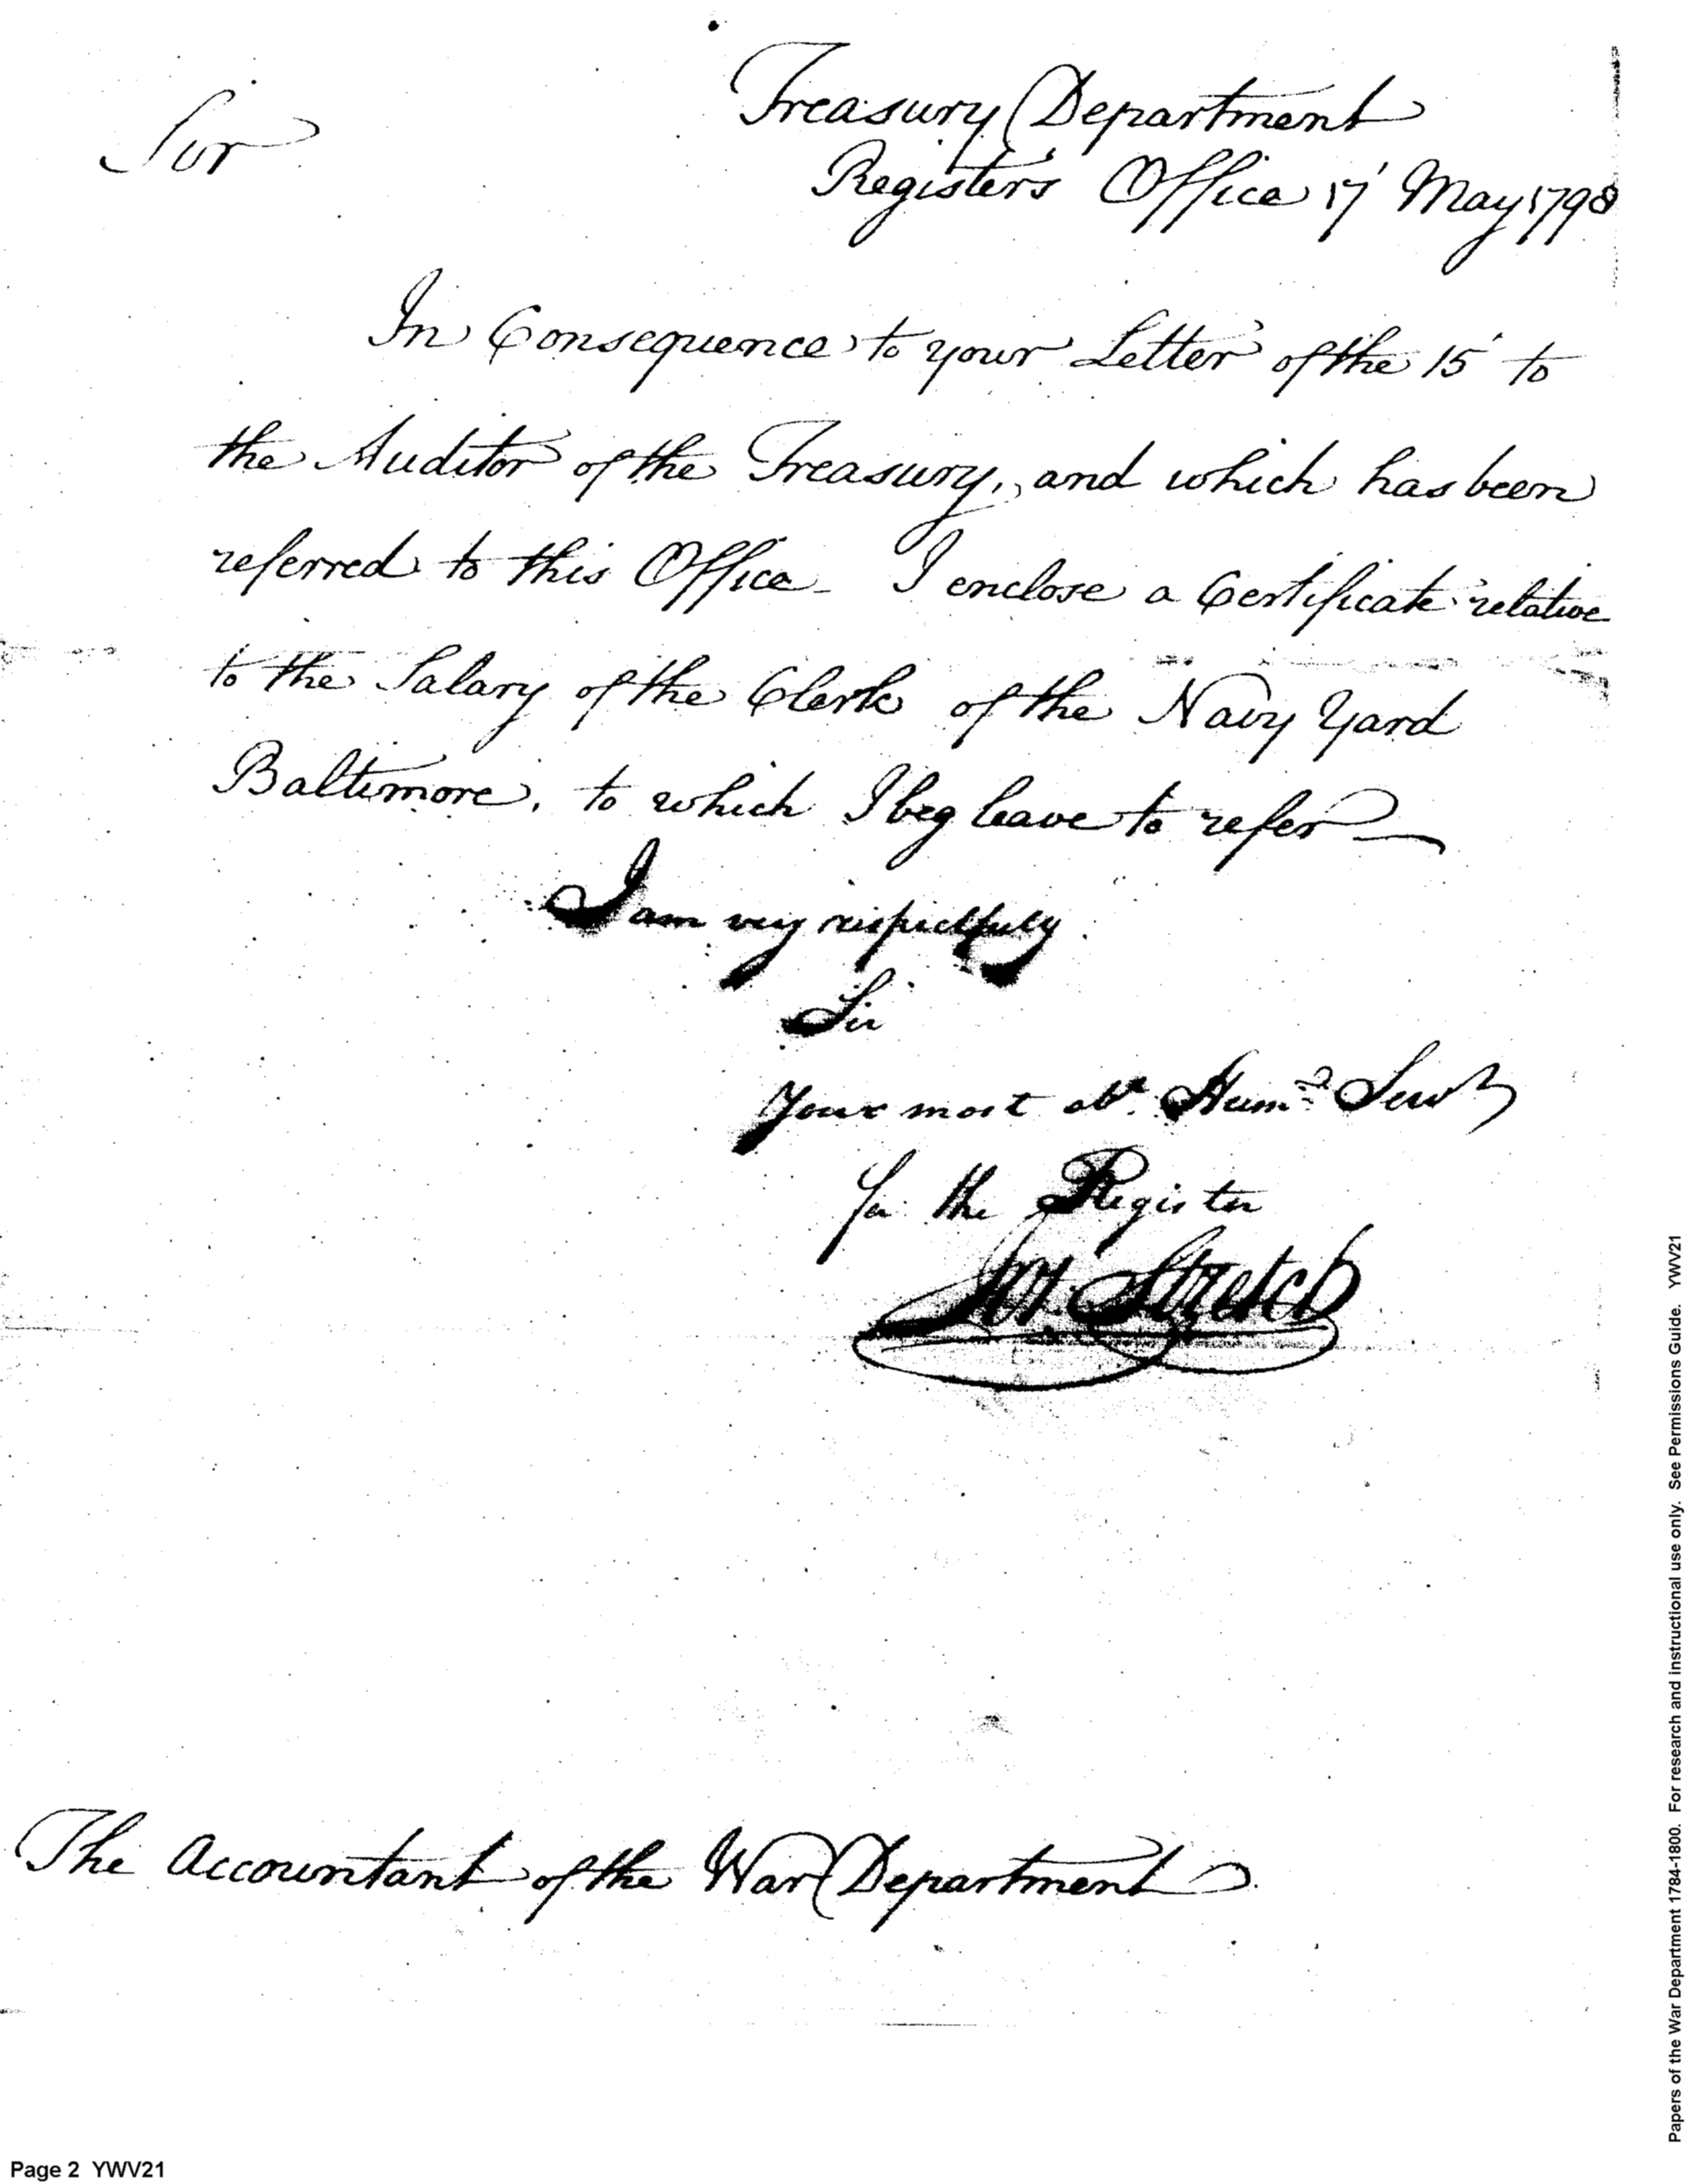 Treasury Department
Sir
Register's Office 17' May 1798
In Consequence to your Letter of the 15' to
the Auditor of the Treasury, and which has been
referred to this Office - I enclose a Certificate relative
to the Salary of the Clerk of the Navy Yard
Baltimore, to which I beg leave to refer —
I am very respectfully
Sir
Your most obt. Hume. Servt
for the Register
Stretch
The Accountant of the War Department
Page 2 YWV21
Papers of the War Department 1784-1800. For research and instructional use only. See Permissions Guide. YWV21